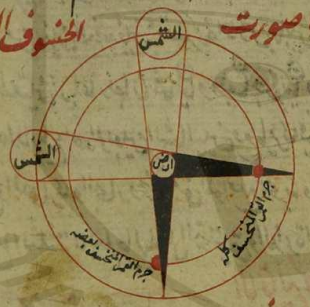 صورت الخسوف
الشمس
الشمس
الارض
جرم القمر المنخسف كله
جرم القمر المنخسف بعضه